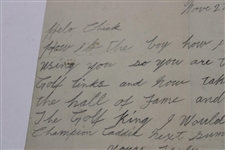 Nov 2
Helo Chick
How is the boy how is
using you so you are t
Golf links and now tak
the hall of Fame and
The Golf King I Would
Champion Caddie Gert
yours